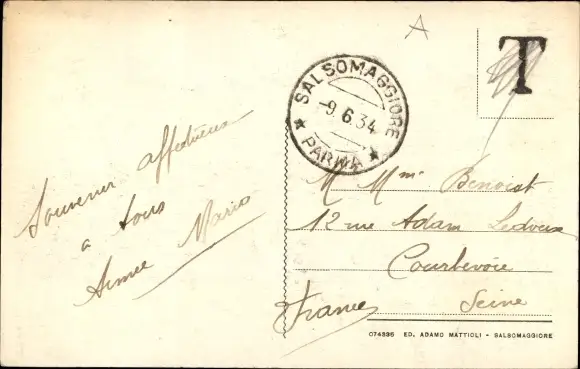 A
T
SALSOMAGGIORE
-9.6.34
PARMA
Souvenir affectueux
à tous
Mario
M Mme Benoist
12 rue Adam Ledoux
Courbevoie
Seine
France
074335 ED. ADAMO MATTIOLI - SALSOMAGGIORE